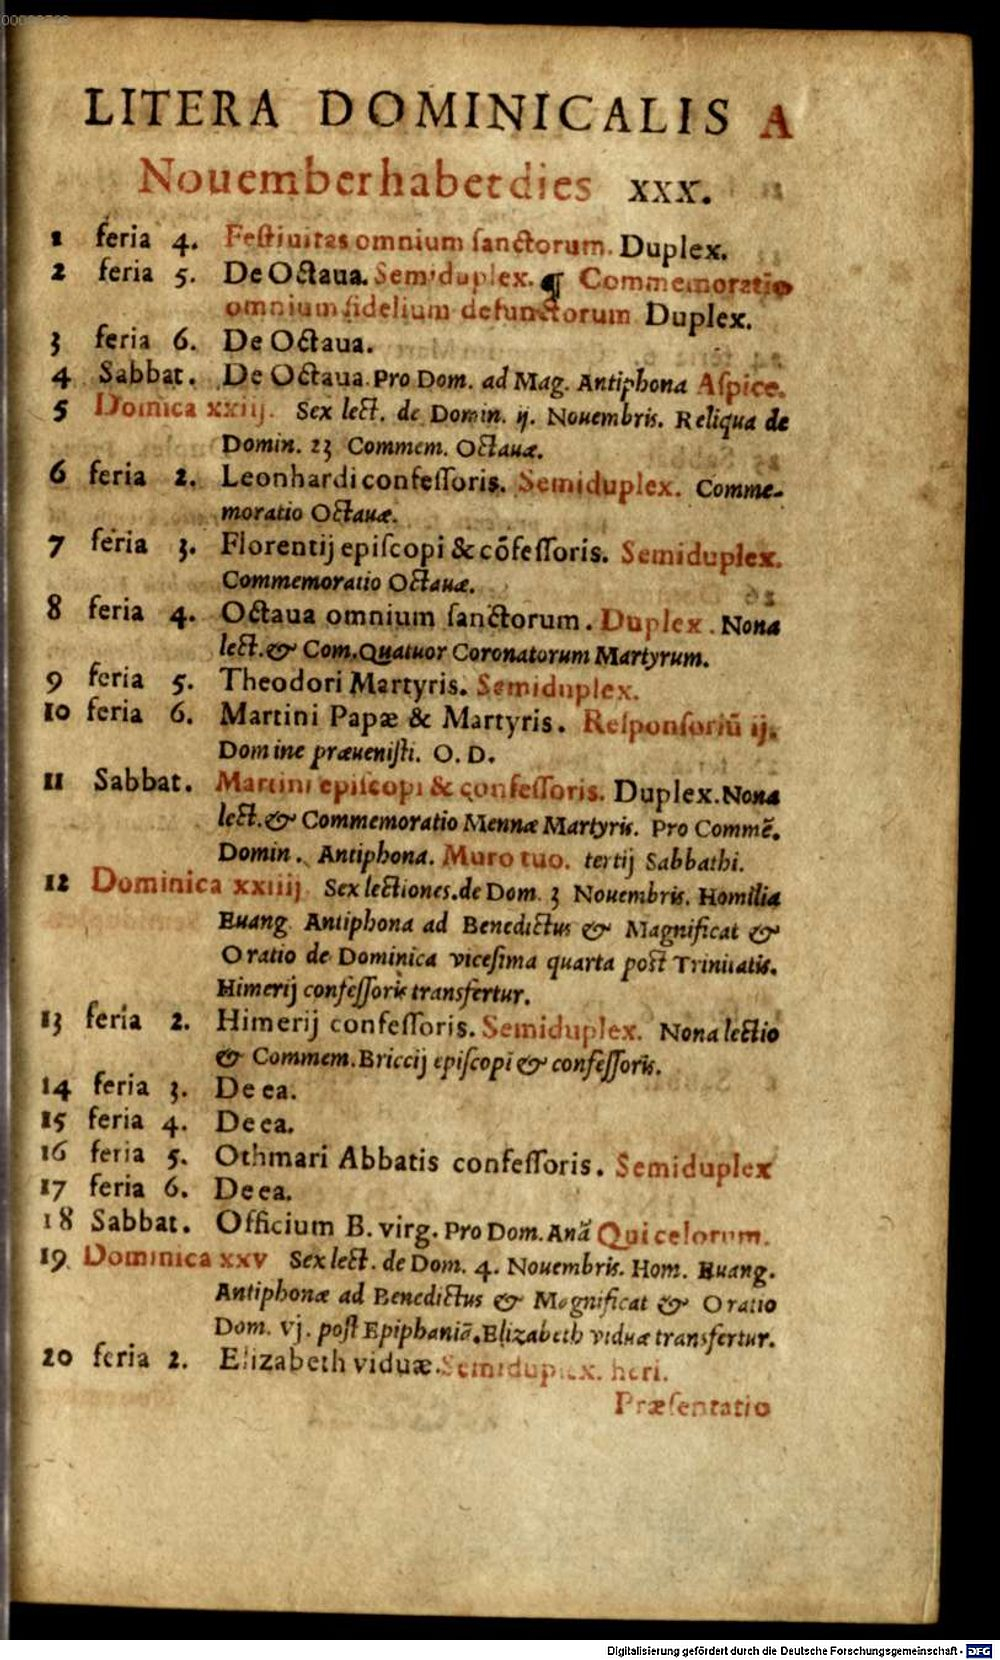 LITERA DOMINICALIS A
Nouember habet dies XXX.
1 feria 4. Festiuitas omnium sanctorum. Duplex.
2 feria 5. De Octaua. Semiduplex. ¶ Commemoratio
omnium fidelium defunctorum Duplex.
3 feria 6. De Octaua.
4 Sabbat. De Octaua. Pro Dom. ad Mag. Antiphona Aspice.
5 Domīca xxiij. Sex lect. de Domin. ij. Nouembris. Reliqua de
Domin. 23 Commem. Octauæ.
6 feria 2. Leonhardi confessoris. Semiduplex. Comme-
moratio Octauæ.
7 feria 3. Florentij episcopi & cōfessoris. Semiduplex.
Commemoratio Octauæ.
8 feria 4. Octaua omnium sanctorum. Duplex. Nona
lect. & Com. Quatuor Coronatorum Martyrum.
9 feria 5. Theodori Martyris. Semiduplex.
10 feria 6. Martini Papæ & Martyris. Responsoriū ij.
Domine præuenisti. O. D.
11 Sabbat. Martini episcopi & confessoris. Duplex. Nona
lect. & Commemoratio Mennæ Martyris. Pro Commē.
Domin. Antiphona. Muro tuo. tertij Sabbathi.
12 Dominica xxiiij. Sex lectiones. de Dom. 3 Nouembris. Homilia
Euang. Antiphona ad Benedictus & Magnificat &
Oratio de Dominica vicesima quarta post Trinitatis.
Himerij confessoris transfertur.
13 feria 2. Himerij confessoris. Semiduplex. Nona lectio
& Commem. Briccij episcopi & confessoris.
14 feria 3. De ea.
15 feria 4. De ea.
16 feria 5. Othmari Abbatis confessoris. Semiduplex
17 feria 6. De ea.
18 Sabbat. Officium B. virg. Pro Dom. Anā Qui celorum.
19 Dominica xxv Sex lect. de Dom. 4. Nouembris. Hom. Euang.
Antiphonæ ad Benedictus & Magnificat & Oratio
Dom. vj. post Epiphaniā. Elizabeth viduæ transfertur.
20 feria 2. Elizabeth viduæ. Semiduplex. heri.
Præsentatio
Digitalisierung gefördert durch die Deutsche Forschungsgemeinschaft - DFG